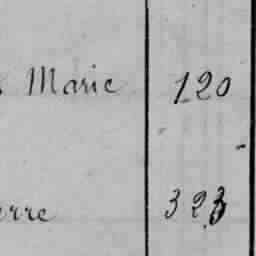 Marie 120
erre 323